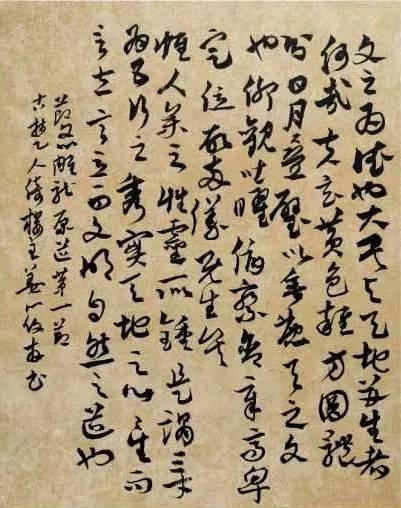 文之為德也大矣與天地並生者
何哉夫玄黄色雜方圓體
分日月疊璧以垂麗天之文
也仰觀吐曜俯察含章高卑
定位故兩儀既生矣
惟人參之性靈所鍾是謂三才
為五行之秀實天地之心生而
言立言立而文明自然之道也
節文心雕龍原道第一節
古楚人倚樓主 書